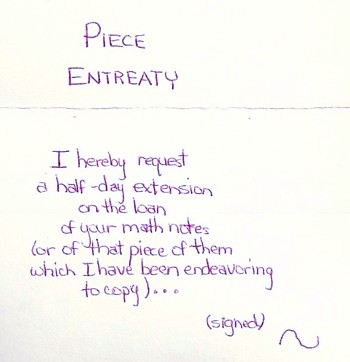 PIECE
ENTREATY
I hereby request
a half-day extension
on the loan
of your math notes
(or of that piece of them
which I have been endeavoring
to copy)...
(signed)